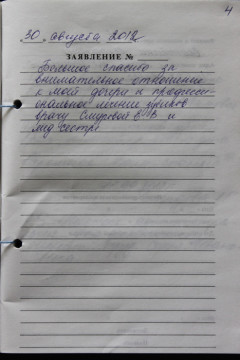 4
30 августа 2012
ЗАЯВЛЕНИЕ №
Большое спасибо за
внимательное отношение
к моей дочери и професси-
ональное лечение зубиков
врачу и
мед сестре